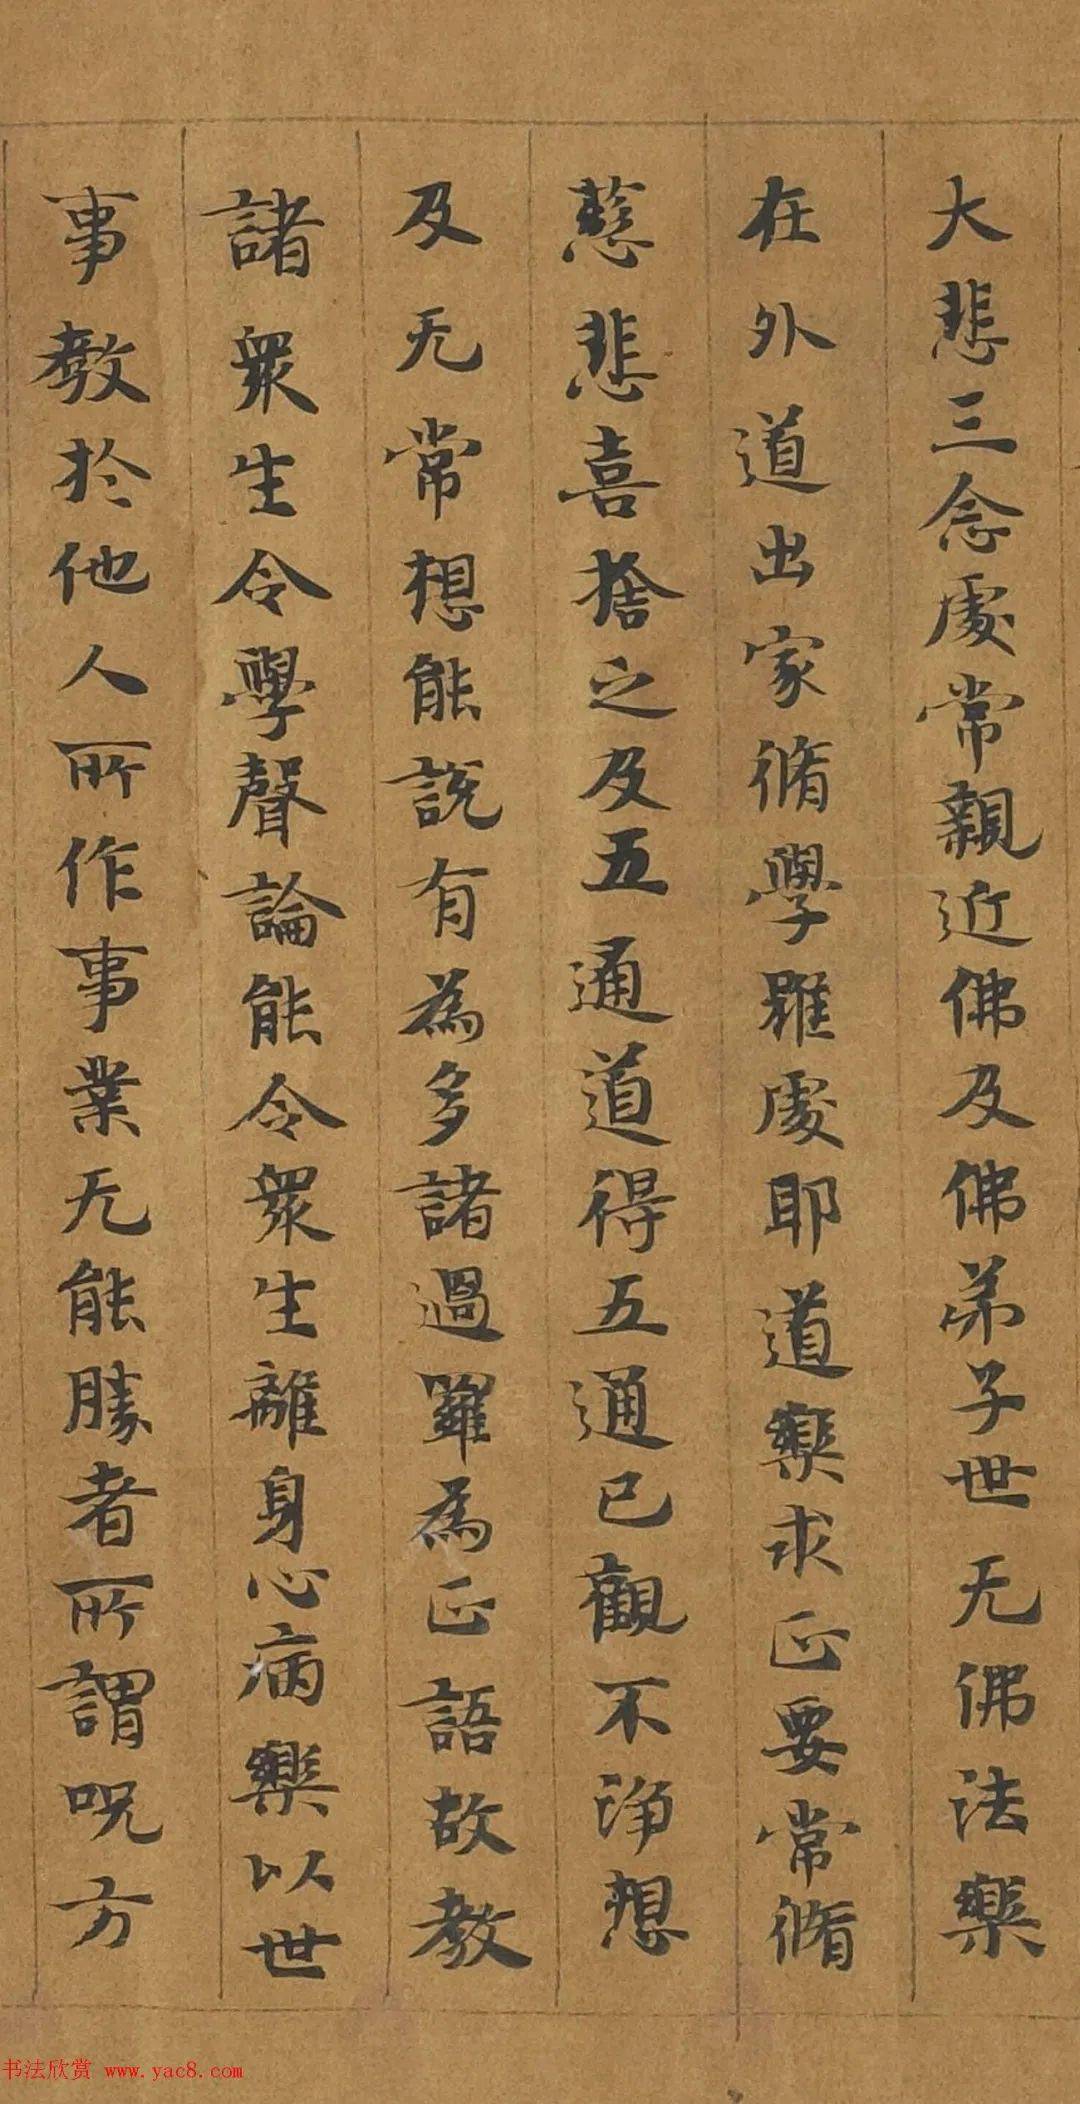 大悲三念處常親近佛及佛弟子世无佛法樂
在外道出家脩學雖處耶道樂求正要常脩
慈悲喜捨之及五通道得五通已觀不淨想
及无常想能說有為多諸過羅為正語故教
諸衆生令學聲論能令衆生離身心病樂以世
事教於他人所作事業无能勝者所謂呪方
书法欣赏 www.yac8.com